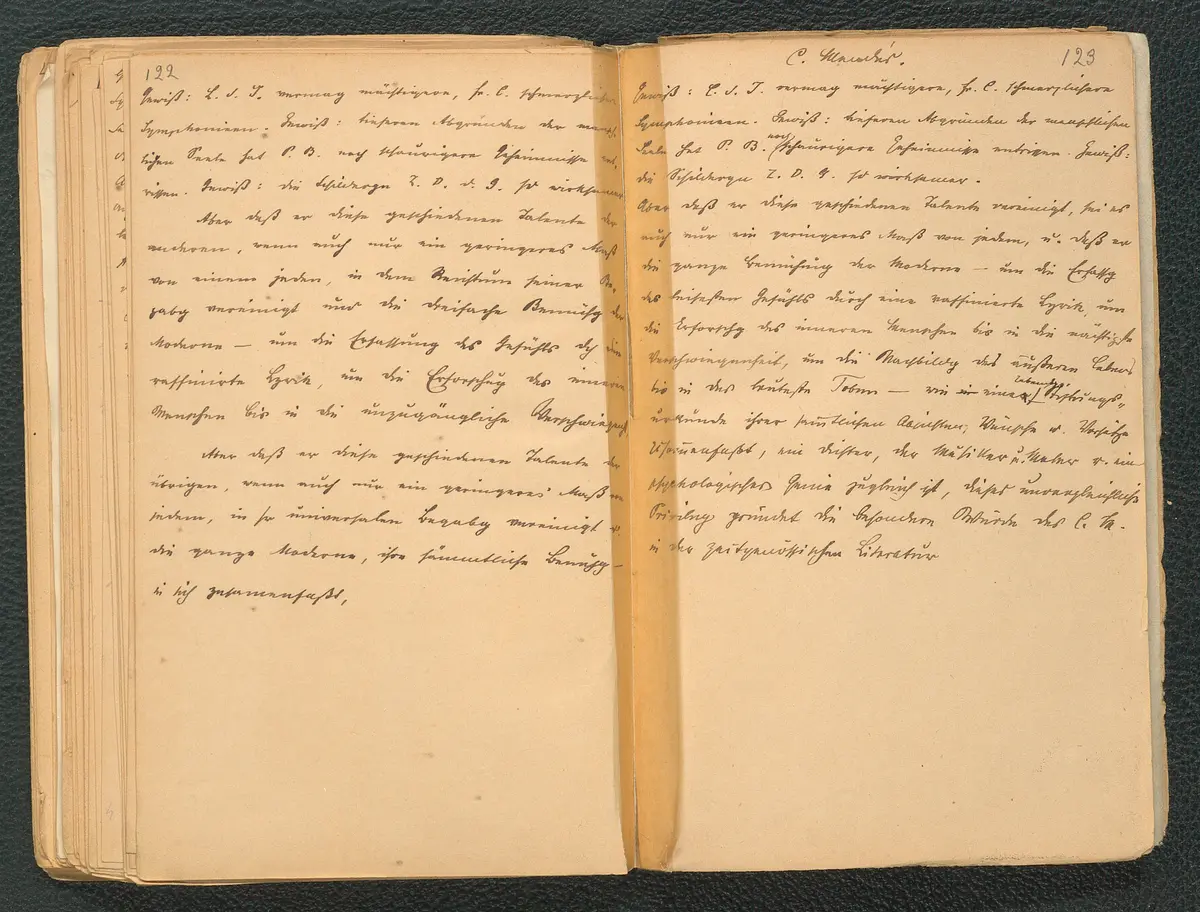 122
Gewiß: L. d. T. vermag mächtigere, fr. C. schmerzlichere
Symphonieen. Gewiß: tieferen Abgründen der mensch-
lichen Seele hat P. B. noch schaurigere Geheimnisse ent-
rissen. Gewiß: die Schildergn Z. D. d. G. so wirksamer
Aber daß er diese geschiedenen Talente der
anderen, wenn auch nur ein geringeres Maß
von einem jeden, in dem Reichtum seiner Be-
gabg vereinigt und die dreifache Bemühg der
Moderne — um die Erfassung des Gefühls dch eine
raffinirte Lyrik, um die Erforschug des inneren
Menschen bis in die unzugängliche Verschwiegenh
Aber daß er diese geschiedenen Talente der
übrigen, wenn auch nur ein geringeres Maß von
jedem, in so universalen Begabg vereinigt u.
die ganze Moderne, ihre sämmtliche Bemühg —
in sich zusamenfaßt,
C. Mendès.
123
Gewiß: L. d. T. vermag mächtigere, fr. C. schmerzlichere
Symphonieen. Gewiß: tieferen Abgründen der menschlichen
Seele hat P. B. noch schaurigere Geheimnisse entrissen. Gewiß:
die Schildergn Z. D. G. so wirksamer.
Aber daß er diese geschiedenen Talente vereinigt, sei es
auch nur ein geringeres Maß von jedem, u. daß er
die ganze Bemühung der Moderne — um die Erfassg
des leisesten Gefühls durch eine raffinierte Lyrik, um
die Erforschg des inneren Menschen bis in die nächtigste
Verschwiegenheit, um die Nachbildg des äußeren Lebens
bis in das lauteste Toben — wie in einer lebendigen Stiftungs-
urkunde ihrer sämtlichen Absichten, Wünsche u. Vorsätze
zusamenfaßt, ein Dichter, der Musiker u. Maler u. ein
psychologisches Genie zugleich ist, dieses unvergleichliche
Privileg gründet die besondere Würde des C. M.
in der zeitgenössischen Literatur